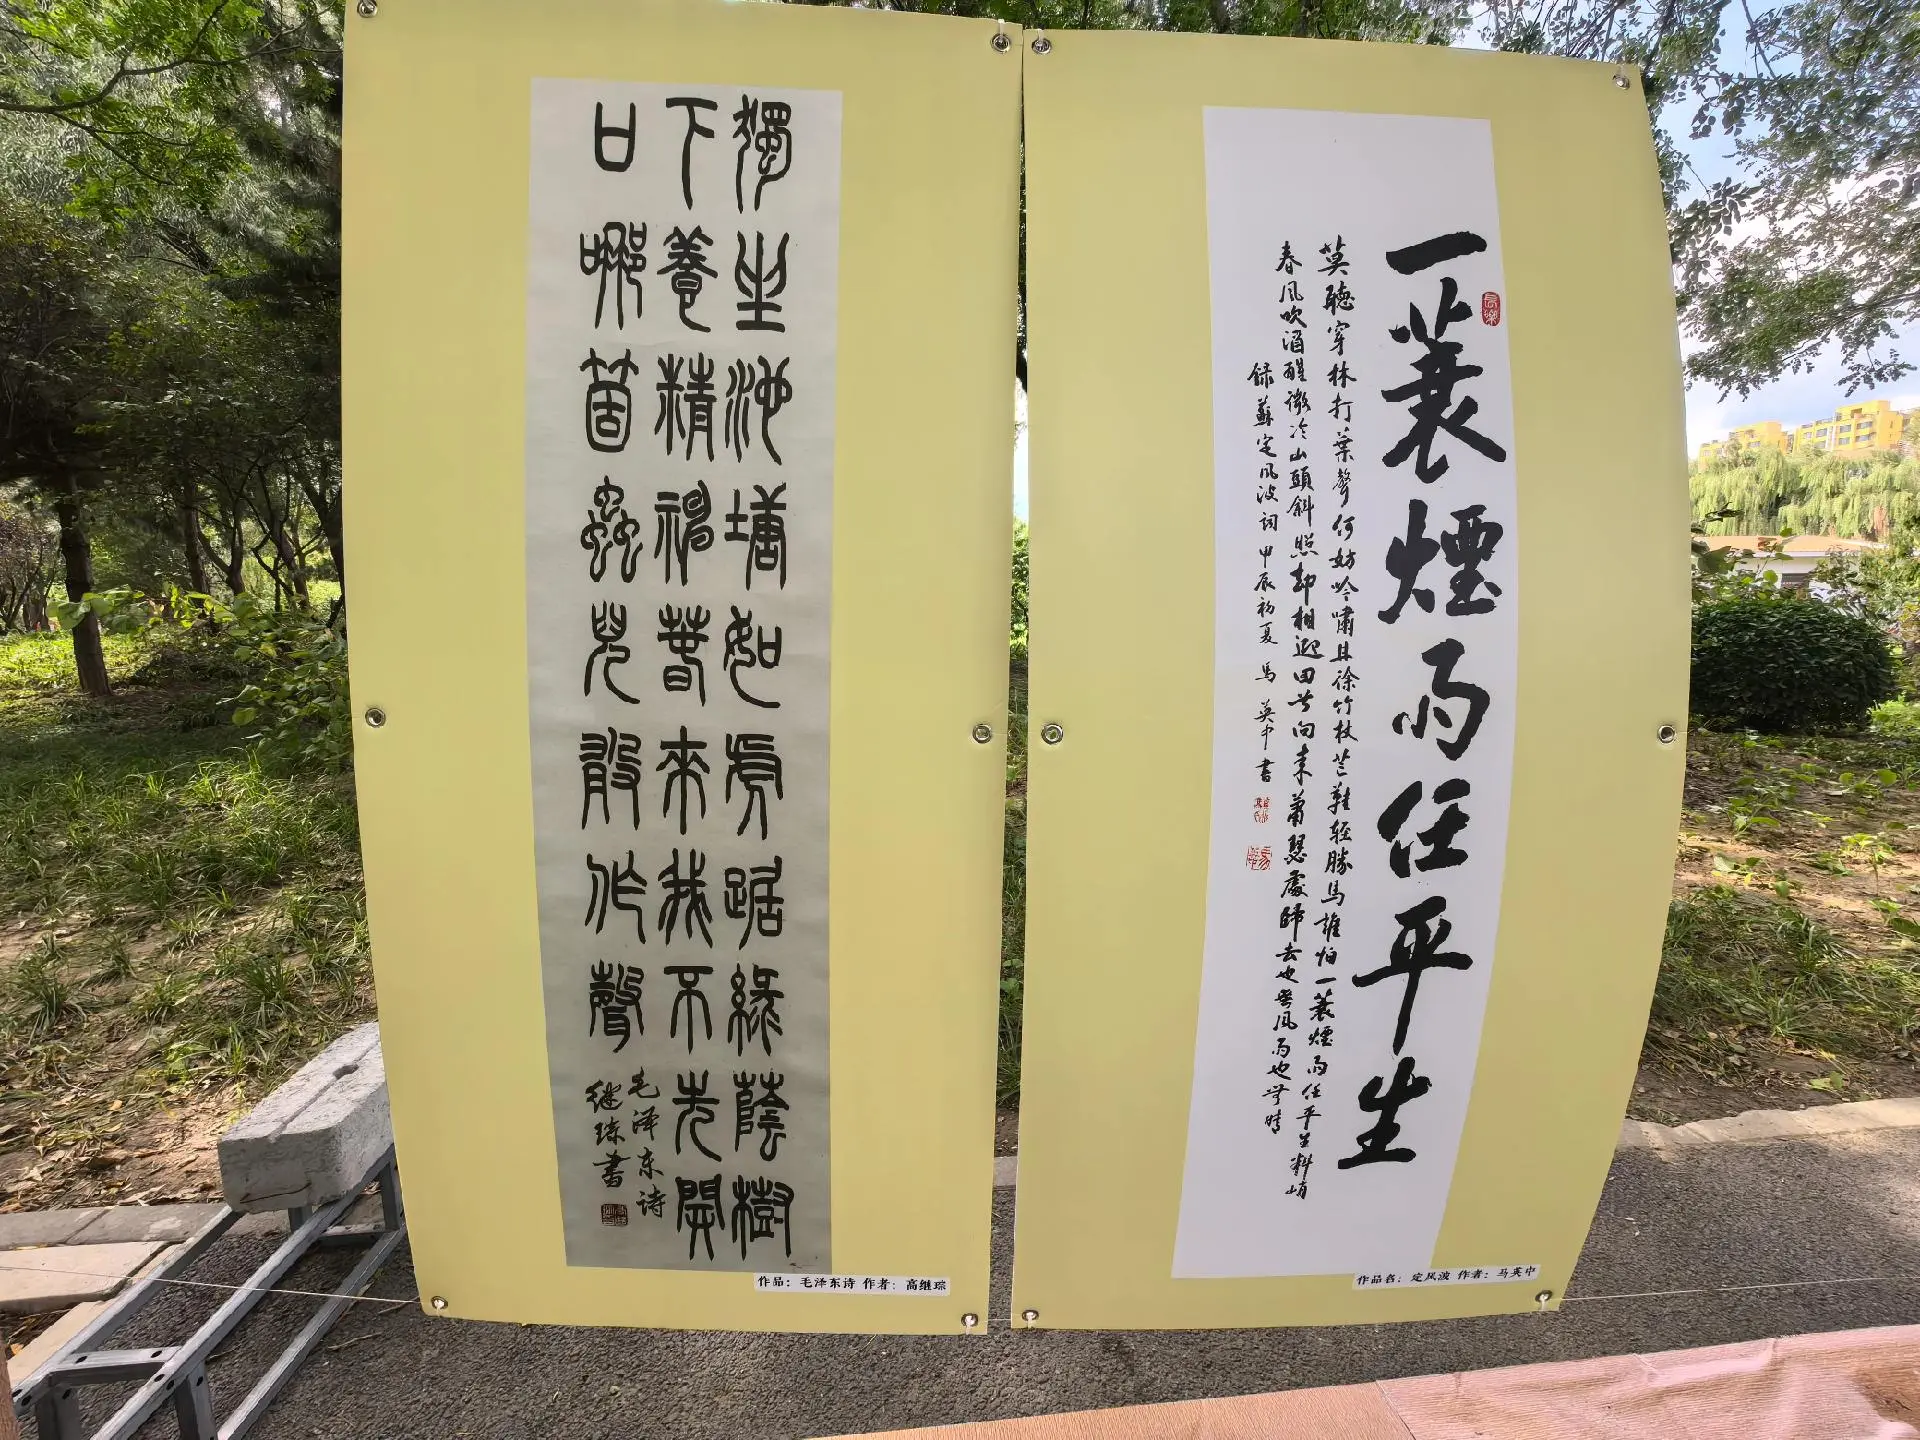 獨坐池塘如虎踞綠蔭樹
下養精神春來我不先開
口哪箇蟲兒敢作聲
毛泽东诗
继琮书
作品：毛泽东诗 作者：高继琮
長樂
一蓑煙雨任平生
莫聽穿林打葉聲何妨吟嘯且徐竹杖芒鞋轻勝馬誰怕一蓑煙雨任平生料峭
春風吹酒醒微冷山頭斜照却相迎回首向来蕭瑟處歸去也無風雨也無晴
録蘇定風波詞 甲辰初夏 馬英中書
作品名：定风波 作者：马英中